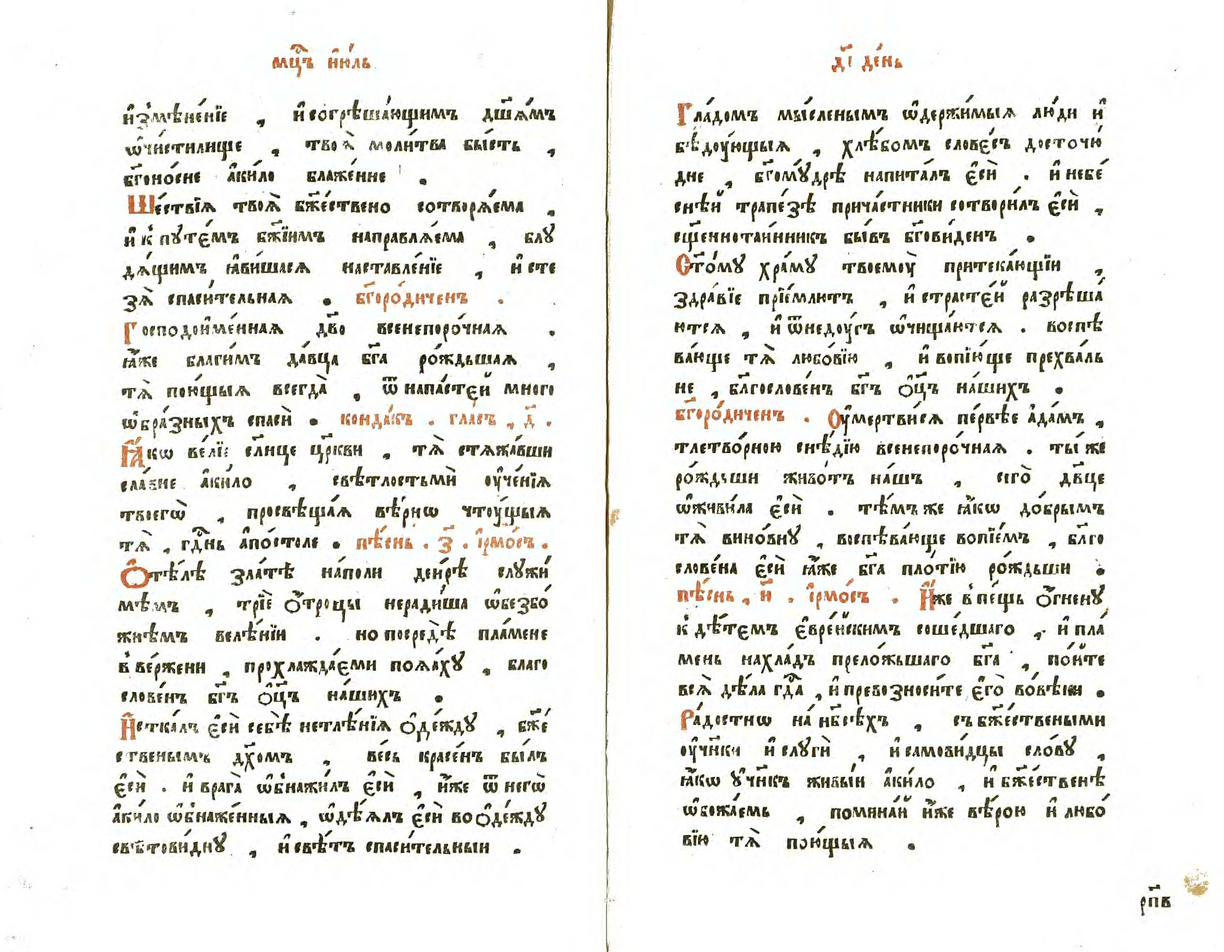 мцⷭ҇ъ і҆ю́ль
и҆змѣне́нїе , и҆согрѣша́ющимъ дш҃а́мъ
ѡ҆чисти́лище , твоѧ̀ моли́тва бы́сть ,
бг҃оно́сне а҆ки́ло блаже́нне .
Ше́ствїѧ твоѧ̀ бж҃е́ствено сотворѧ́ема ,
и҆ к̾ путе́мъ бж҃іимъ направлѧ́ема , блꙋ
дѧ́щимъ ꙗ҆ви́шасѧ наставле́нїе , и҆ сте
зѧ̀ спаси́тельнаѧ . бг҃оро́диченъ .
Господоимени́таѧ дв҃о всенепоро́чнаѧ .
ꙗ҆́же благи́мъ да́вца бг҃а ро́ждьшаѧ ,
тѧ̀ пою́щыѧ всегда̀ , ѿ напа́стей много
ѡ҆бра́зныхъ спасѝ . конда́къ . гла́съ , д҃ .
Ꙗ҆́кѡ ве́лїе сл҃нце цр҃кви , тѧ̀ стѧжа́вши
сла́вне а҆ки́ло , свѣ́тлостьми ᲂу҆че́нїѧ
твоегѡ̀ , просвѣща́ѧ вѣ́рнѡ чтꙋ́щыѧ
тѧ̀ , гдⷭ҇нь а҆по́столе . пѣ́снь . з҃ . і҆рмо́съ .
Ѻ҆тѣ́лѣ зла́тѣ на́поли деи́рѣ слꙋжи́
мѣмъ , трїе́ ѻ҆́троцы неради́ша ѡ҆безбо́
жнѣмъ велѣ́нїи . но посредѣ̀ пла́мене
в̾ве́ржени , прохлажда́еми поѧ́хꙋ , благо
слове́нъ бг҃ъ ѻ҆ц҃ъ на́шихъ .
И҆стка́лъ є҆сѝ себѣ̀ нетлѣ́нїѧ ѻ҆де́ждꙋ , бж҃е́
ственымъ дх҃омъ , весь кра́сенъ бы́лъ
є҆сѝ . и҆ врага̀ ѡ҆бнажи́лъ є҆сѝ , и҆́же ѿ негѡ̀
а҆ки́ло ѡ҆бнаже́нныѧ , ѡ҆дѣ́ѧлъ є҆сѝ во ѻ҆де́ждꙋ
свѣтови́днꙋ , и҆ свѣ́тъ спаси́тельныи .
д҃і де́нь
Гла́домъ мы́сленымъ ѡ҆держи́мыѧ лю́ди и҆
бѣ́дꙋющыѧ , хлѣ́бомъ слове́съ досточю́
дне , бг҃омꙋ́дрѣ напита́лъ є҆сѝ . и҆ небе́
снѣй трапе́зѣ прича́стники сотвори́лъ є҆сѝ ,
сщ҃еннотаи́нникъ бы́въ бг҃ови́денъ .
Ст҃о́мꙋ хра́мꙋ твоемꙋ̀ притека́ющїи ,
здра́вїе прїе́млютъ , и҆ страсте́й разрѣша́
ютсѧ , и҆ ѿнедꙋ́гъ ѡ҆чища́ютсѧ . воспѣ
ва́юще тѧ̀ любо́вїю , и҆ вопїю́ще прехва́ль
не , блгⷭ҇ослове́нъ бг҃ъ ѻ҆ц҃ъ на́шихъ .
бг҃оро́диченъ . Оу҆мертви́сѧ пе́рвѣе а҆да́мъ ,
тлетво́рною снѣ́дїю всенепоро́чнаѧ . ты́ же
ро́ждьши живо́тъ на́шъ , сего̀ дв҃це
ѡ҆живи́ла є҆сѝ . тѣ́мъ же ꙗ҆́кѡ до́брымъ
тѧ̀ вино́внꙋ , воспѣва́юще вопїе́мъ , блг҃о
слове́на є҆сѝ ꙗ҆́же бг҃а пло́тїю ро́ждьши .
пѣ́снь , и҃ . і҆рмо́съ . И҆́же в̾ пе́щь ѻ҆́гненꙋ
к̾ дѣ́темъ є҆вре́йскимъ соше́дшаго , и҆ пла́
мень нахла́дъ прело́жьшаго бг҃а , по́йте
всѧ̀ дѣ́ла гдⷭ҇а , и҆ превозноси́те є҆го̀ во́вѣки .
Ра́достнѡ на нб҃сѣ́хъ , съ бж҃е́ствеными
ᲂу҆чн҃ки и҆ слꙋгѝ , и҆ самови́дцы сло́вꙋ ,
ꙗ҆́кѡ ᲂу҆чн҃къ жи́выи а҆ки́ло , и҆ бж҃е́ственѣ
ѡ҆божа́емь , помина́й и҆́же вѣ́рою и҆ любо́
вїю тѧ̀ пою́щыѧ .
рп҃в